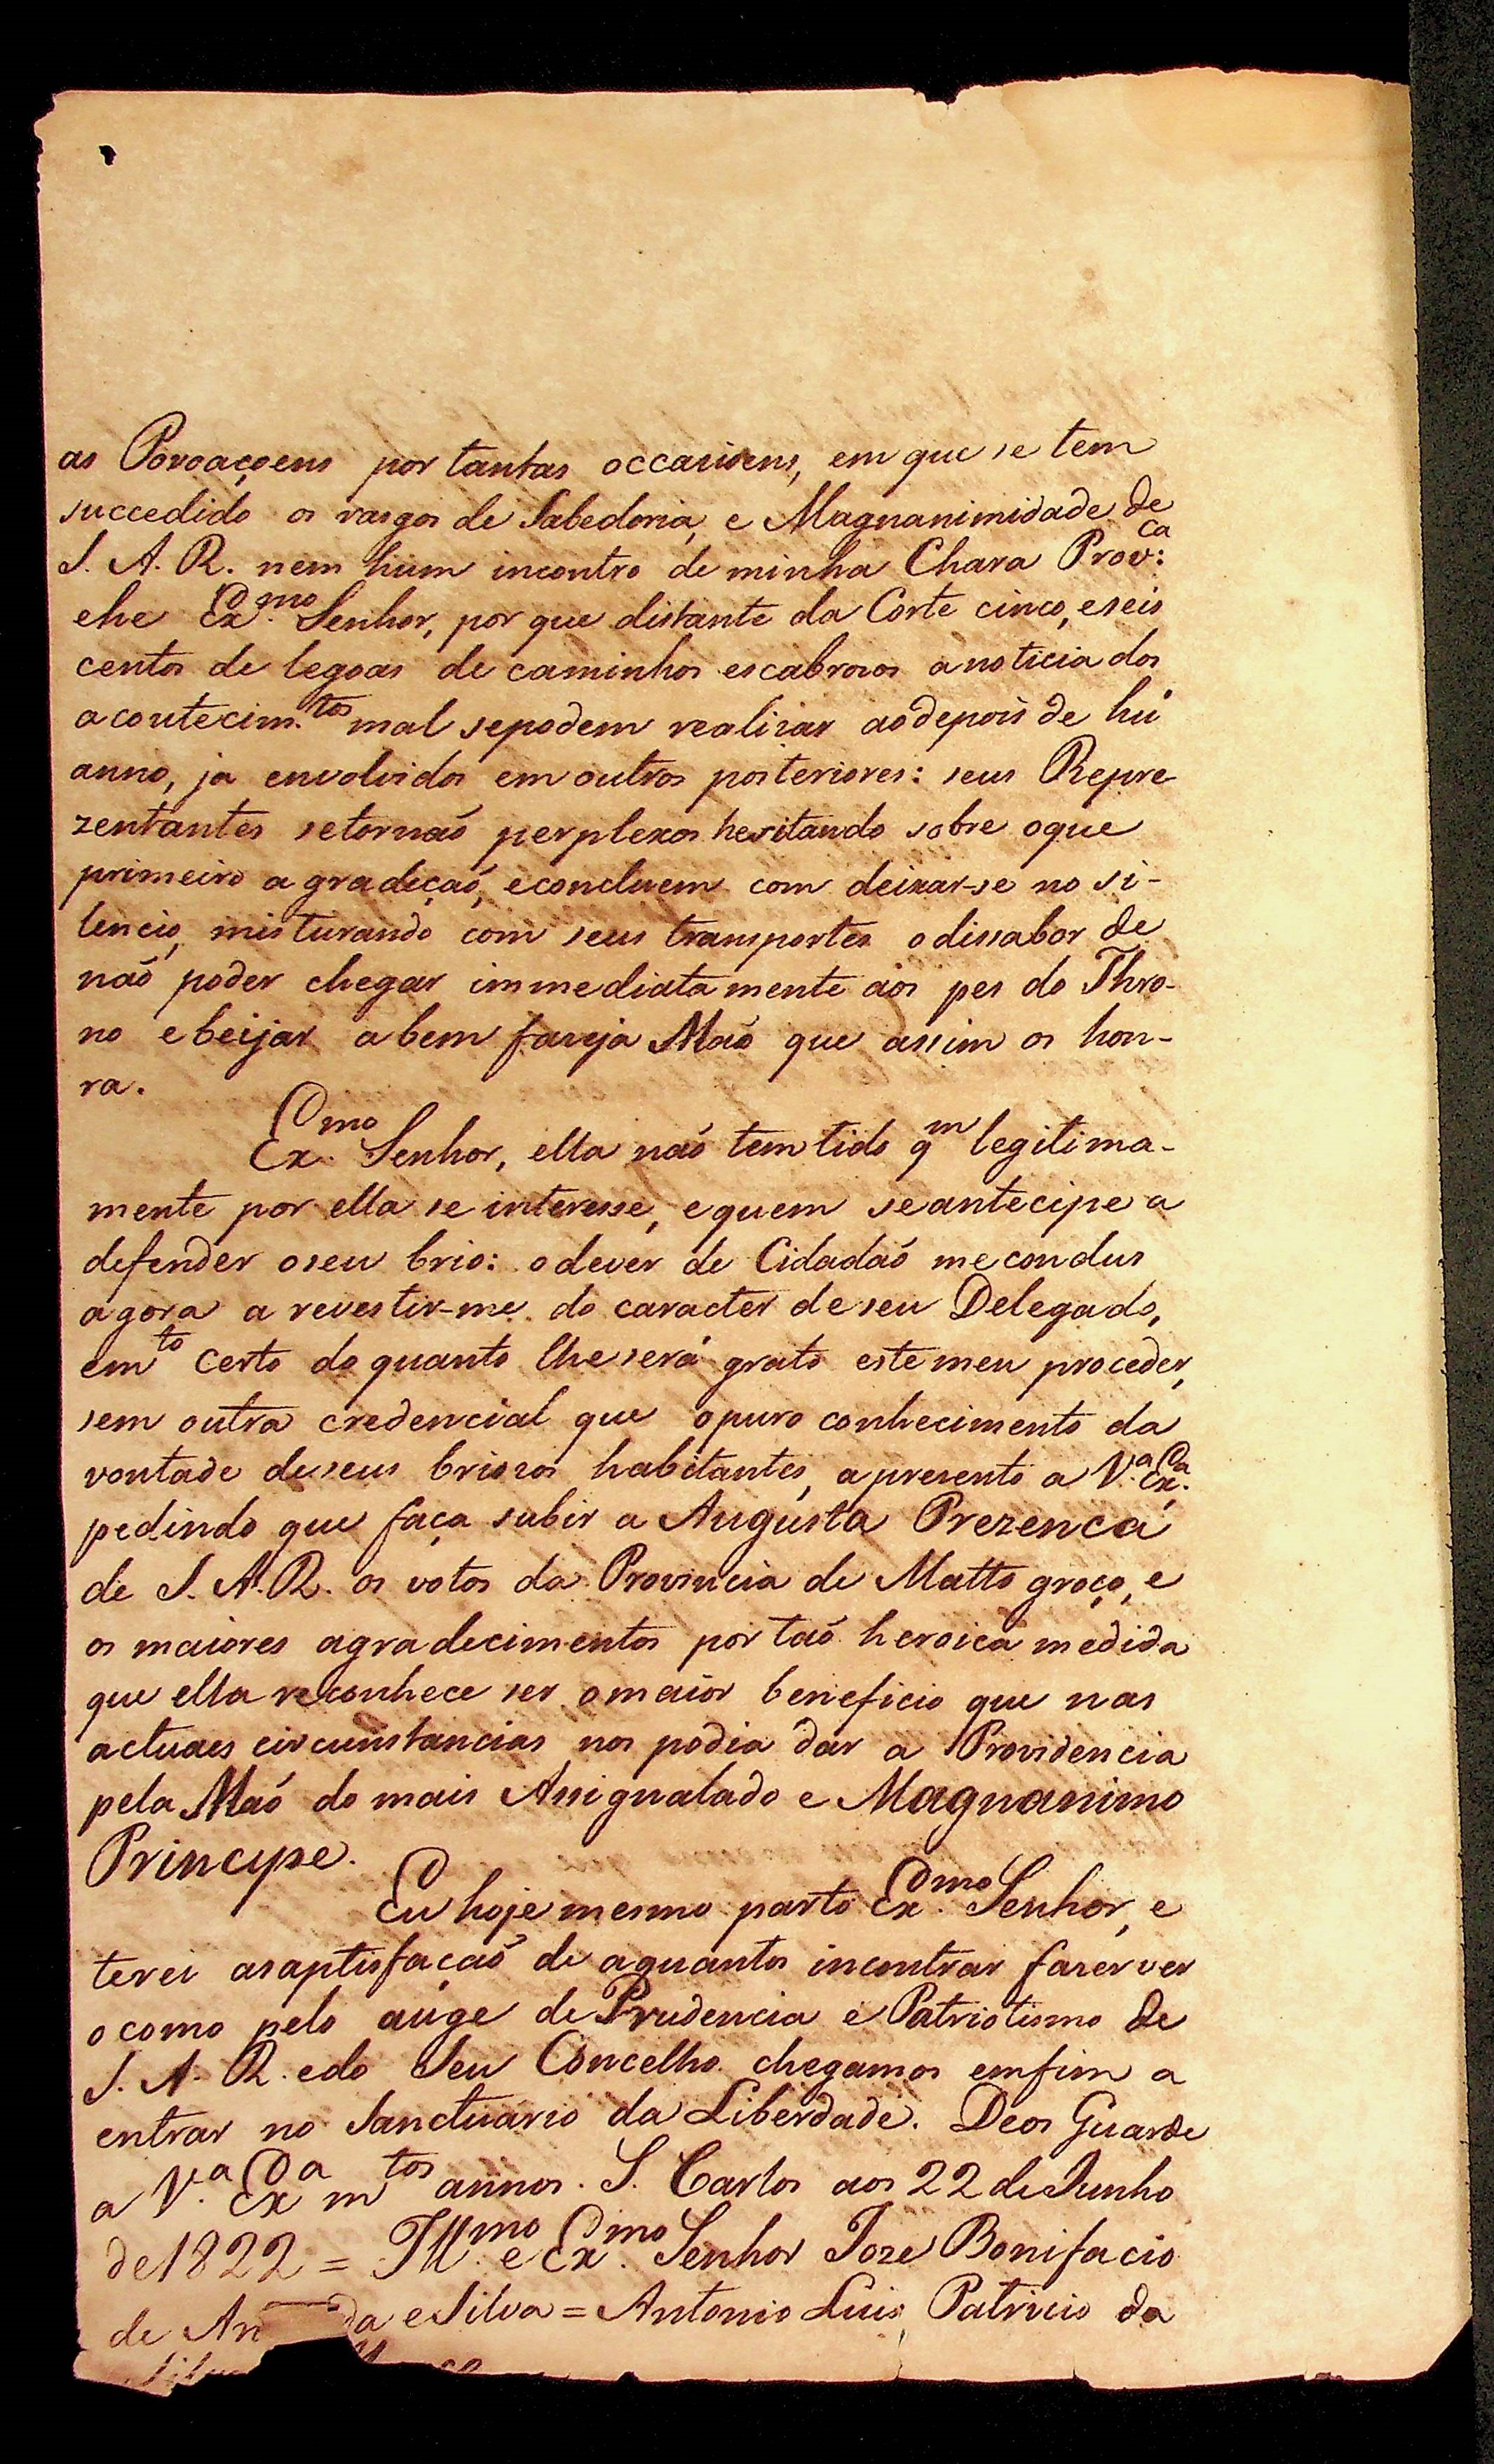 as Povoaçoens por tantas occasioens, em que se tem
succedido os rasgos de Sabedoria, e Magnanimidade de
S. A. R. nem hum incontro de minha Chara Prov:ca
ehe Ex.mo Senhor, por que distante da Corte cinco, e seis
centos de legoas de caminhos escabrosos a noticia dos
acontecim.tos mal se podem realisar ao depois de hú
anno, ja envolvidos em outros posteriores: seus Repre
zentantes se tornaó perplexos hesitando sobre o que
primeiro agradeçaó, e concluem com deixar-se no si-
lencio, misturando com seus transportes o dissabor de
naó poder chegar immediatamente aos pes do Thro-
no e beijar a bem faseja Maó que assim os hon-
ra.
Ex.mo Senhor, ella naó tem tido qm legitima-
mente por ella se interesse, e quem se antecipe a
defender o seu brio: o dever de Cidadaó me condus
agora a revestir-me do caracter de seu Delegado,
emto certo do quanto lhe será grato este meu proceder,
sem outra credencial que o puro conhecimento da
vontade de seus briosos habitantes, apresento a V.a Ex.ca
pedindo que faça subir a Augusta Prezenca
de S. A. R. os votos da Provincia de Matto groço, e
os maiores agradecimentos por taó heroica medida
que ella reconhece ser o maior beneficio que nas
actuaes circunstancias nos podia dar a Providencia
pela Maó do mais Assignalado e Magnanimo
Principe.
Eu hoje mesmo parto Ex.mo Senhor, e
terei a saptisfaçaó de a quantos incontrar faser ver
o como pelo auge de Prudencia e Patriotismo de
S. A. R. e do Seu Concelho chegamos emfim a
entrar no Sanctuario da Liberdade. Deos Guarde
a V.a Exca mtos annos. S. Carlos aos 22 de Junho
de 1822 = Ill.mo e Ex.mo Senhor Joze Bonifacio
de An da e Silva = Antonio Luis Patricio da